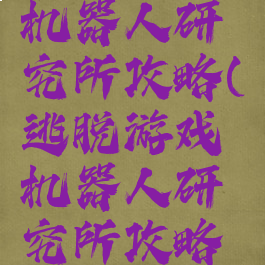 机器人研
究所攻略(
逃脱游戏
机器人研
究所攻略